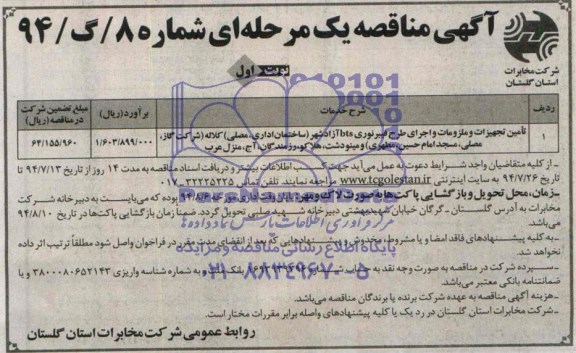 آگهی مناقصه یک مرحله‌ای شماره ۸/گ/۹۴
شرکت مخابرات
استان گلستان
نوبت اول
ردیف
شرح خدمات
برآورد(ریال)
مبلغ تضمین شرکت در مناقصه(ریال)
۱
تأمین تجهیزات و ملزومات و اجرای طرح فیبر نوری bts آزادشهر (ساختمان اداری، مصلی) کلاله (شرکت گاز،
مصلی، مسجد امام حسین، مطهری) و مینودشت، هلاکو، رزمندگان، آج، منزل عرب
۱/۶۰۳/۸۹۹/۰۰۰
۶۴/۱۵۵/۹۶۰
ـ از کلیه متقاضیان واجد شرایط دعوت به عمل می‌آید جهت کسب اطلاعات بیشتر و دریافت اسناد مناقصه به مدت ۱۴ روز از تاریخ ۹۴/۷/۱۳ تا
تاریخ ۹۴/۷/۲۶ به سایت اینترنتی www.tcgolestan.ir مراجعه نمایند. تلفن تماس ۳۲۲۲۵۲۲۵-۰۱۷
ـ زمان، محل تحویل و بازگشایی پاکت‌ها به صورت لاک و مهر تا پایان وقت اداری مورخه ۹۴/۸/۹ بوده که می‌بایست به دبیرخانه شرکت
مخابرات به آدرس گلستان ـ گرگان خیابان شهید بهشتی دبیرخانه تحویل گردد. ضمناً زمان بازگشایی پاکت‌ها در تاریخ ۹۴/۸/۱۰
می‌باشد.
ـ به کلیه پیشنهادهای فاقد امضا و یا مشروط، مخدوش و پیشنهادهایی که بعد از انقضای مدت مقرر در فراخوان واصل شود مطلقاً ترتیب اثر داده
نخواهد شد.
ـ سپرده شرکت در مناقصه به صورت وجه نقد به حساب بانک ملت و به شماره شناسه واریزی ۳۸۰۰۰۸۰۶۵۲۱۴۳ و یا
ضمانتنامه بانکی معتبر می‌باشد.
ـ هزینه آگهی مناقصه به عهده شرکت برنده یا برندگان مناقصه می‌باشد.
ـ شرکت مخابرات استان گلستان در رد یک یا کلیه پیشنهادهای واصله برابر مقررات مختار است.
روابط عمومی شرکت مخابرات استان گلستان
مرکز فرآوری اطلاعات پارس نماد داده‌ها
پایگاه اطلاع رسانی مناقصه و مزایده
۰۲۱-۸۸۳۴۹۶۷۰-۵